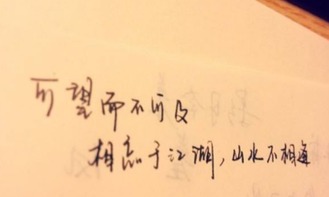 可望而不可及
相忘于江湖，山水不相逢